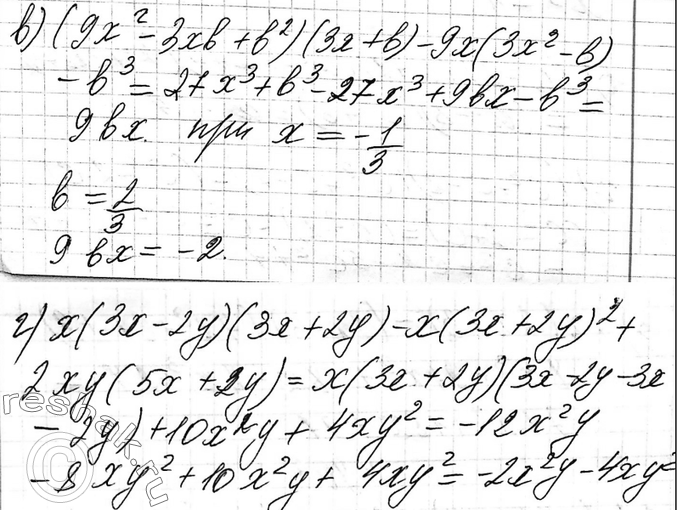 в) (9x² - 3xв + в²)(3x + в) - 9x(3x² - в)
- в³ = 27x³ + в³ - 27x³ + 9вx - в³ =
9вx. при x = -1/3
в = 2/3
9вx = -2.
г) x(3x - 2y)(3x + 2y) - x(3x + 2y)² +
2xy(5x + 2y) = x(3x + 2y)(3x - 2y - 3x
- 2y) + 10x²y + 4xy² = -12x²y
- 8xy² + 10x²y + 4xy² = -2x²y - 4xy²